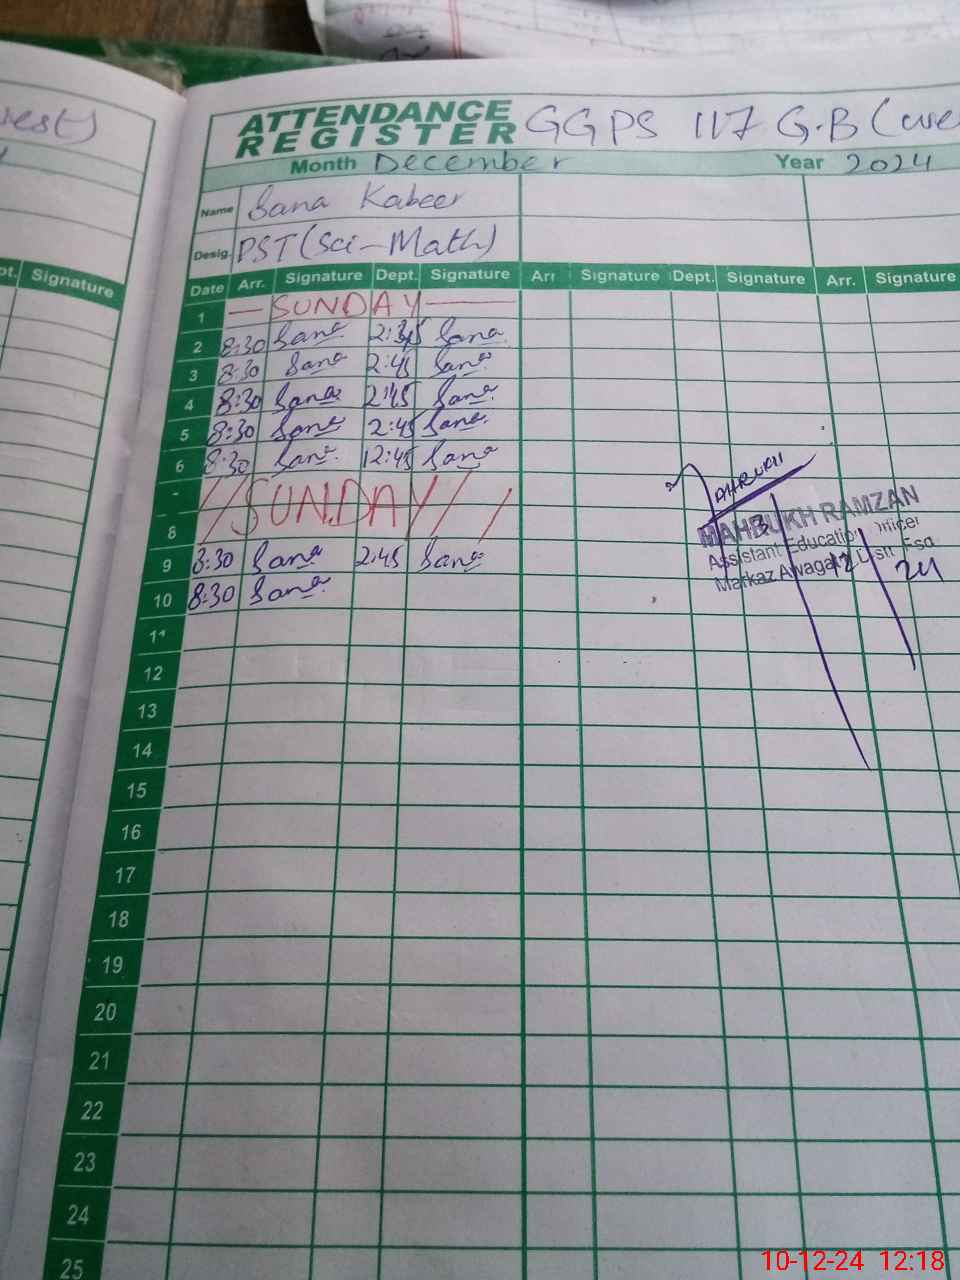 est)
ATTENDANCE REGISTER GGPS 117 G.B (we
Month December Year 2024
Name Sana Kabeer
Desig. PST (Sci-Math)
pt. Signature
Date Arr. Signature Dept. Signature Arr Signature Dept. Signature Arr. Signature
1 SUNDAY
2 8:30 Sana 2:45 Sana
3 8:30 Sana 2:45 Sana
4 8:30 Sana 2:45 Sana
5 8:30 Sana 2:45 Sana
6 8:30 Sana 12:45 Sana
SUNDAY
8
9 8:30 Sana 2:45 Sana
10 8:30 Sana
MAHRUKH
MAHRUKH RAMZAN
Assistant Education Officer
Markaz Awagat
3 12 24
11
12
13
14
15
16
17
18
19
20
21
22
23
24
25
10-12-24 12:18